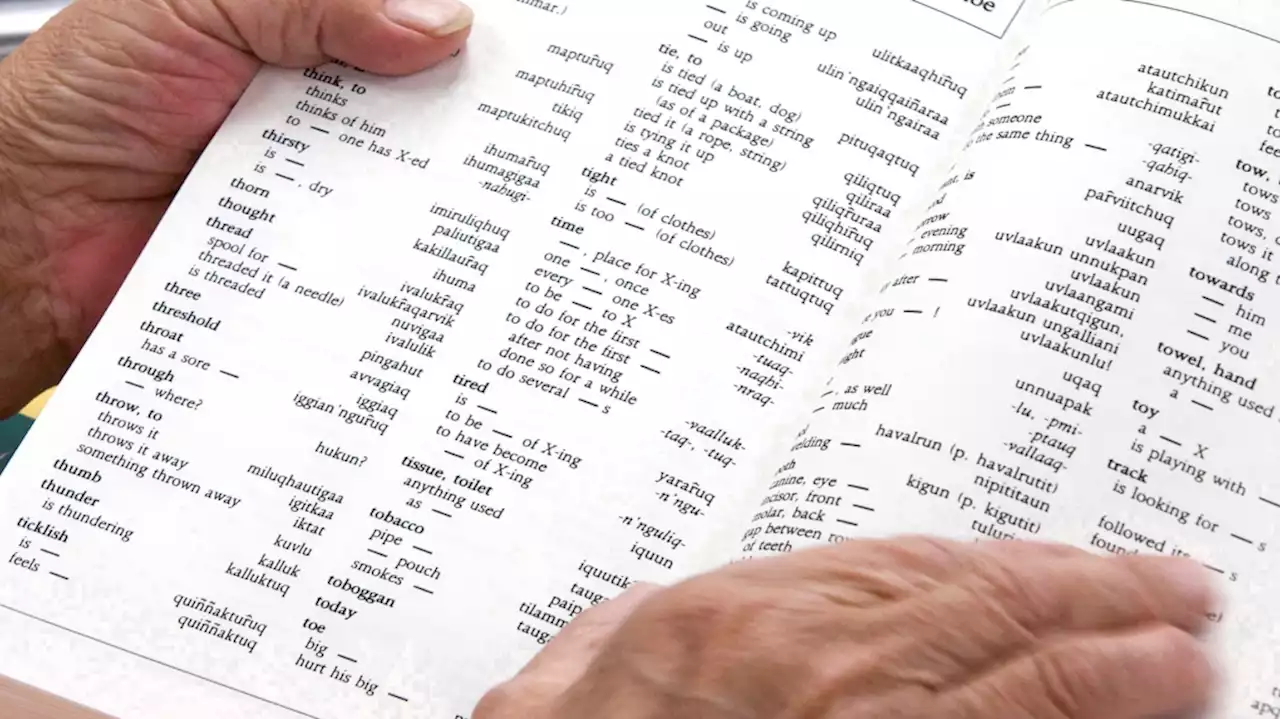 mmar.)
maptur̂uq
maptuhir̂uq
tikiq
maptukitchuq
think, to
thinks ihumar̂uq
thinks of him ihumagigaa
to — one has X-ed -nabugi-
thirsty
is — imiruliqhuq
is —, dry paliutigaa
thorn kakillaur̂aq
thought ihuma
thread ivalukr̂aq
spool for — ivalukr̂aqarvik
threaded it (a needle) nuvigaa
is threaded ivalulik
three pingahut
threshold avvagiaq
throat iggiaq
has a sore — iggian'ngur̂uq
through
— where? hukun?
throw, to
throws it miluqhautigaa
throws it away igitkaa
something thrown away iktat
thumb kuvlu
thunder kalluk
is thundering kalluktuq
ticklish
is — quiññaktur̂uq
feels — quiññaktuq
is coming up ulitkaaqhir̂uq
— is going
out ulin'ngaiqqaiñaraa
— is up ulin'ngairaa
tie, to
is tied (a boat, dog) pituqaqtuq
is tied up with a string
(as of a package) qiliqtuq
tied it (a rope, string) qiliraa
is tying it up qiliqr̂uraa
ties a knot qiliqhir̂uq
a tied knot qilirniq
tight
is — (of clothes) kapittuq
is too — (of clothes) tattuqtuq
time
—, place for X-ing -vik
one —, once atautchimi
every — one X-es -tuaq-
to be — to X -naqbi-
to do for the first — -nraq-
to do for the first —
after not having
done so for a while -vaalluk-
to do several — s -taq-, -tuq-
tired
is — yarar̂uq
to be — of X-ing -n'ngu-
to have become
— of X-ing -n'nguliq-
tissue, toilet iquun
anything used
as — iquutik
tobacco tauga
pipe — paip
— pouch tilamm
smokes — tauga
toboggan
today
toe
big —
hurt his big —
toe
atautchikun
katimar̂ut
atautchimukkai
someone
the same thing —
-qatigi-
-qabiq-
anarvik
par̂viitchuq
uugaq
uvlaakun
evening uvlaakun unnukpan
morning uvlaakun
after — uvlaangami
uvlaakutqigun,
uvlaakun ungalliani
you — ! uvlaakunlu!
uqaq
unnuapak
, as well -lu, -pmi-
— much -ptauq
-vallaaq-
welding — havalrun (p. havalrutit)
nipititaun
canine, eye — kigun (p. kigutit)
incisor, front —
molar, back —
gap between
of teeth
tow,
tows
tows
tows,
tows it
along
towards
— him
— me
— you
towel, hand
anything used
a —
toy
a — X
is playing with —
track
is looking for — s
followed its — s